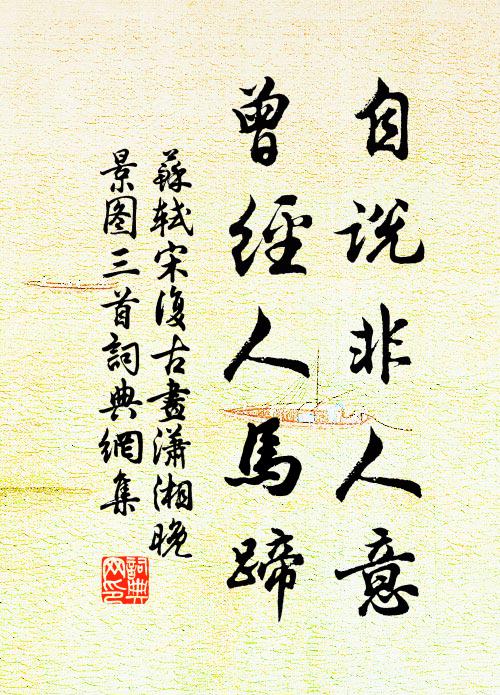 自说非人意
曾經人馬蹄
蘇軾宋復古畫瀟湘晚
景图三首詞典網集
詞典
网印